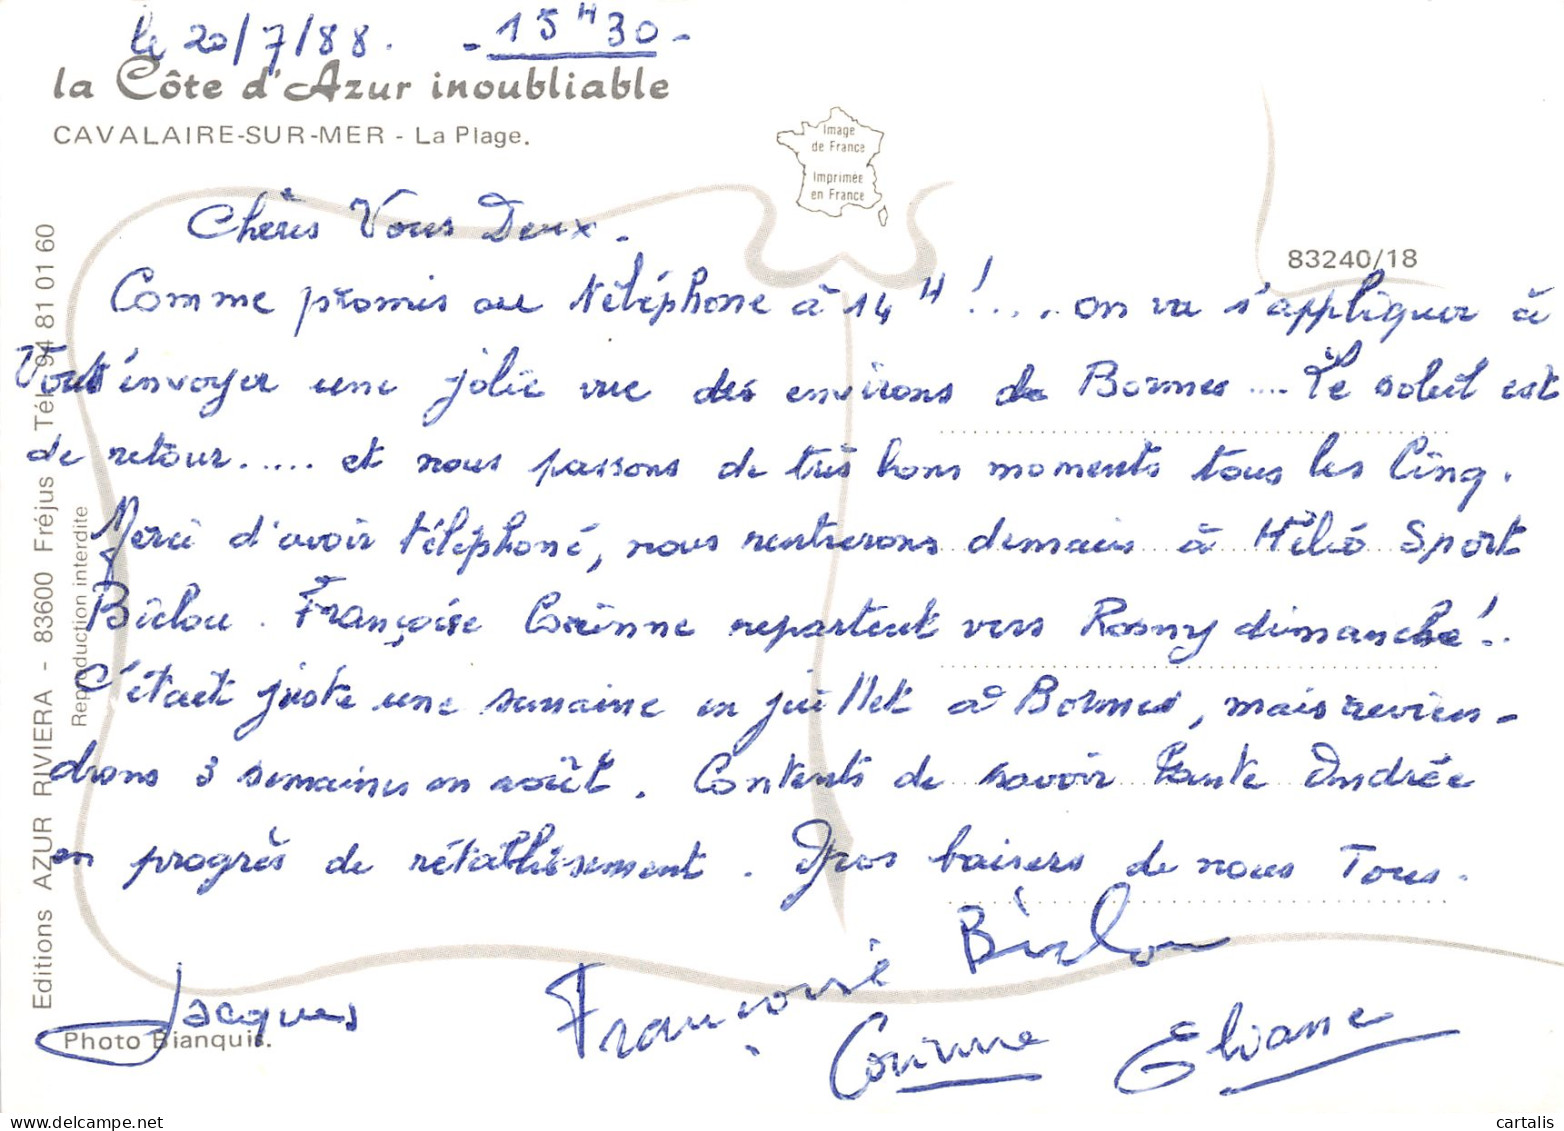 le 20/7/88. - 15H30 -
la Côte d'Azur inoubliable
CAVALAIRE-SUR-MER - La Plage.
Image
de France
Imprimée
en France
83240/18
Chéris Vous Deux.
Comme promis au téléphone à 14H !.... on va s'appliquer à
Vous envoyer une jolie vue des environs de Bormes.... Le soleil est
de retour..... et nous passons de très bons moments tous les Cinq.
Merci d'avoir téléphoné, nous rentrerons demain à Hélio Sport
Biclou. Françoise Corinne repartent vers Rosny dimanche !..
C'était juste une semaine en juillet à Bormes, mais revien-
drons 3 semaines en août. Contents de savoir Tante Andrée
en progrès de rétablissement. Gros baisers de nous Tous.
Biclou
Jacques
Françoise
Corinne
Eliane
Editions AZUR RIVIERA - 83600 Fréjus Tél. 94 81 01 60
Reproduction interdite
Photo Bianquis.
cartalis